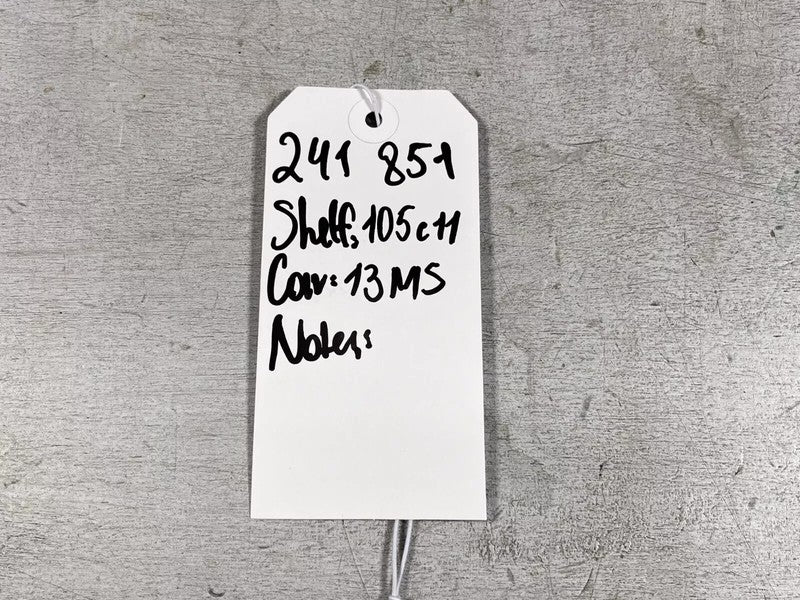 241 851
Shelf: 105c11
Car: 13MS
Notes: